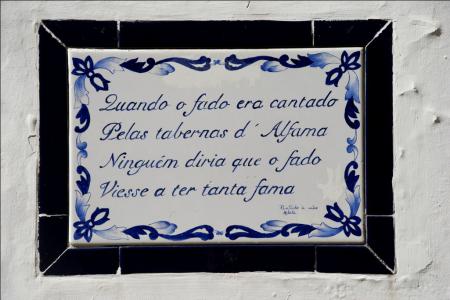 Quando o fado era cantado
Pelas tabernas d'Alfama
Ninguém diria que o fado
Viesse a ter tanta fama